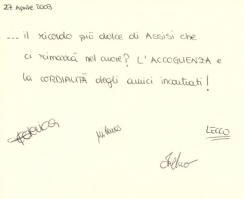 27 Aprile 2003
... il ricordo più dolce di Assisi che
ci rimarrà nel cuore? L'ACCOGLIENZA e
la CORDIALITÀ degli amici incontrati!
LECCO